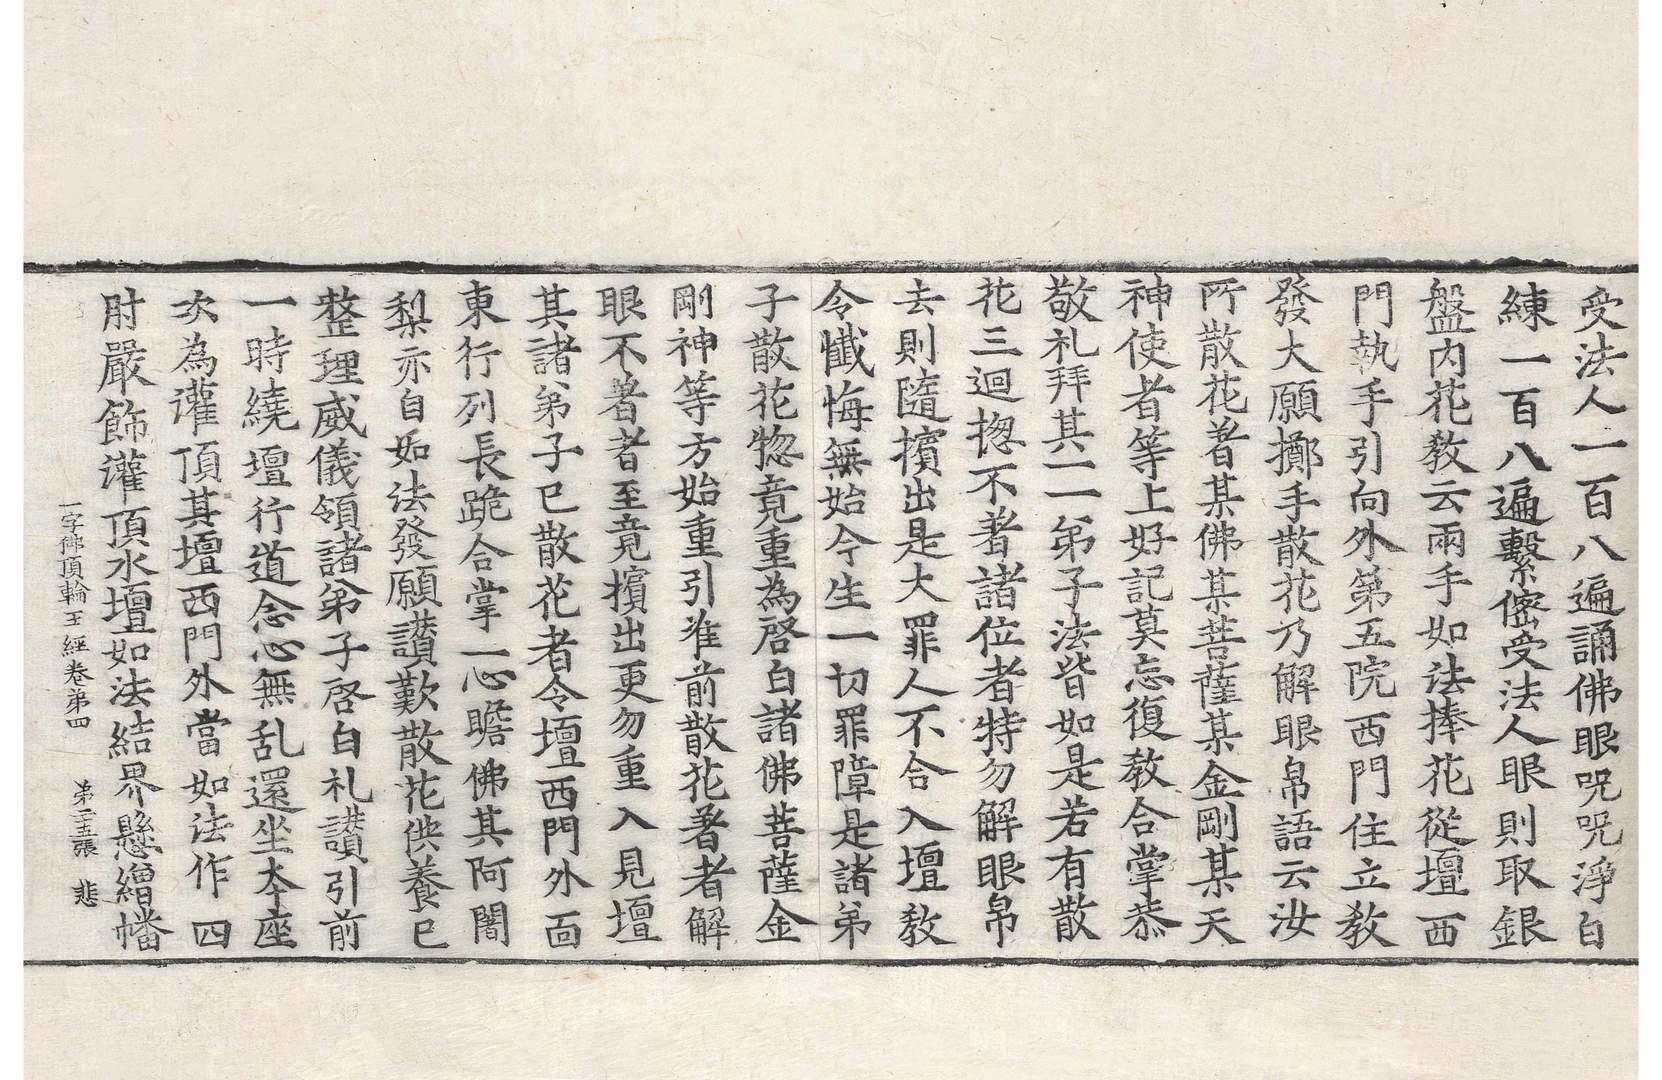 受法人一百八遍誦佛眼呪呪淨白
練一百八遍繫僁受法人眼則取銀
盤内花教云兩手如法捧花從壇西
門執手引向外第五院西門住立教
發大願擲手散花乃解眼帛語云汝
所散花著某佛某菩薩某金剛某天
神使者等上好記莫忘復教合掌恭
敬礼拜其一一弟子法皆如是若有散
花三迴揔不著諸位者特勿解眼帛
去則隨擯出是大罪人不合入壇教
令懺悔無始今生一切罪障是諸弟
子散花惣竟重為啓白諸佛菩薩金
剛神等方始重引准前散花著者解
眼不著者至竟擯出更勿重入見壇
其諸弟子已散花者令壇西門外面
東行列長跪合掌一心瞻佛其阿闍
梨亦自如法發願讃歎散花供養已
整理威儀領諸弟子啓白礼讃引前
一時繞壇行道念心無乱還坐本座
次為灌頂其壇西門外當如法作四
肘嚴飾灌頂水壇如法結界懸繒幡
一字佛頂輪王經卷弟四 第二五張 悲